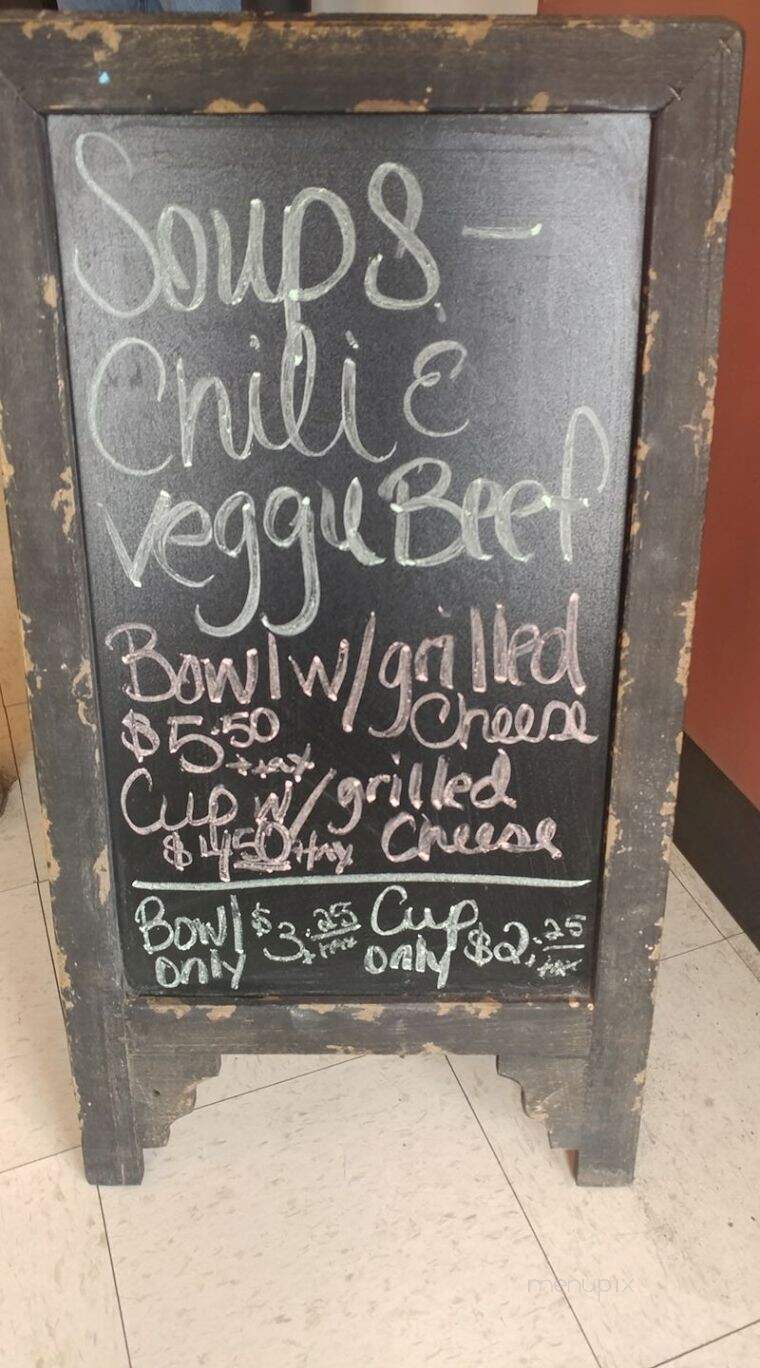 Soups -
Chili &
veggie Beef
Bowl w/grilled
$5.50 Cheese
+tax
Cup w/grilled
$4.50 +tax Cheese
Bowl $3.25 Cup $2.25
only +tax only +tax
menupix